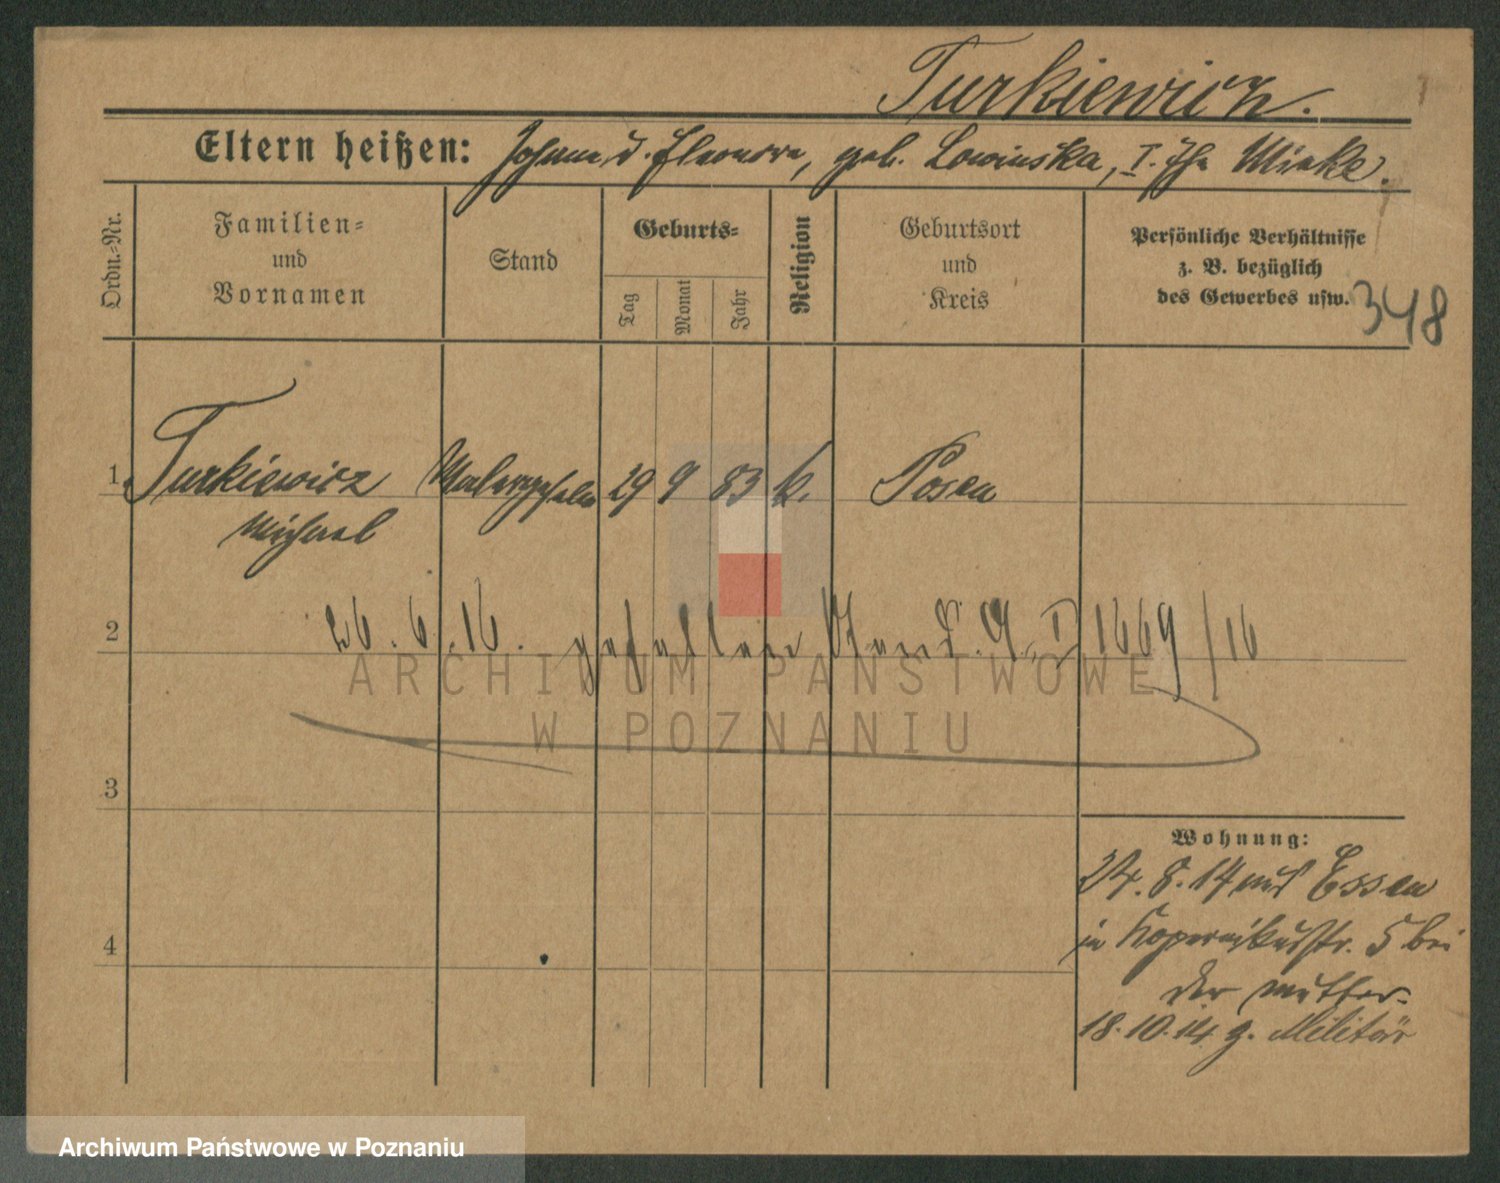 Turkiewicz.
Eltern heißen: Johann u. Eleonore, geb. Lowinska, I. Ehe Mielke.
Ordn.-Nr.
Familien- und Vornamen
Stand
Geburts-
Tag
Monat
Jahr
Religion
Geburtsort und Kreis
Persönliche Verhältnisse
z. B. bezüglich
des Gewerbes usw.
348
1 Turkiewicz Malergehilfe 29 9 83 k. Posen
Michael
2 26.6.16. gefallen Stand. A. I 1669/16
3
4
Wohnung:
24.8.14 aus Essen
in Kopernikusstr. 5 bei
der Mutter.
18.10.14 z. Militär
ARCHIWUM PAŃSTWOWE
W POZNANIU
Archiwum Państwowe w Poznaniu